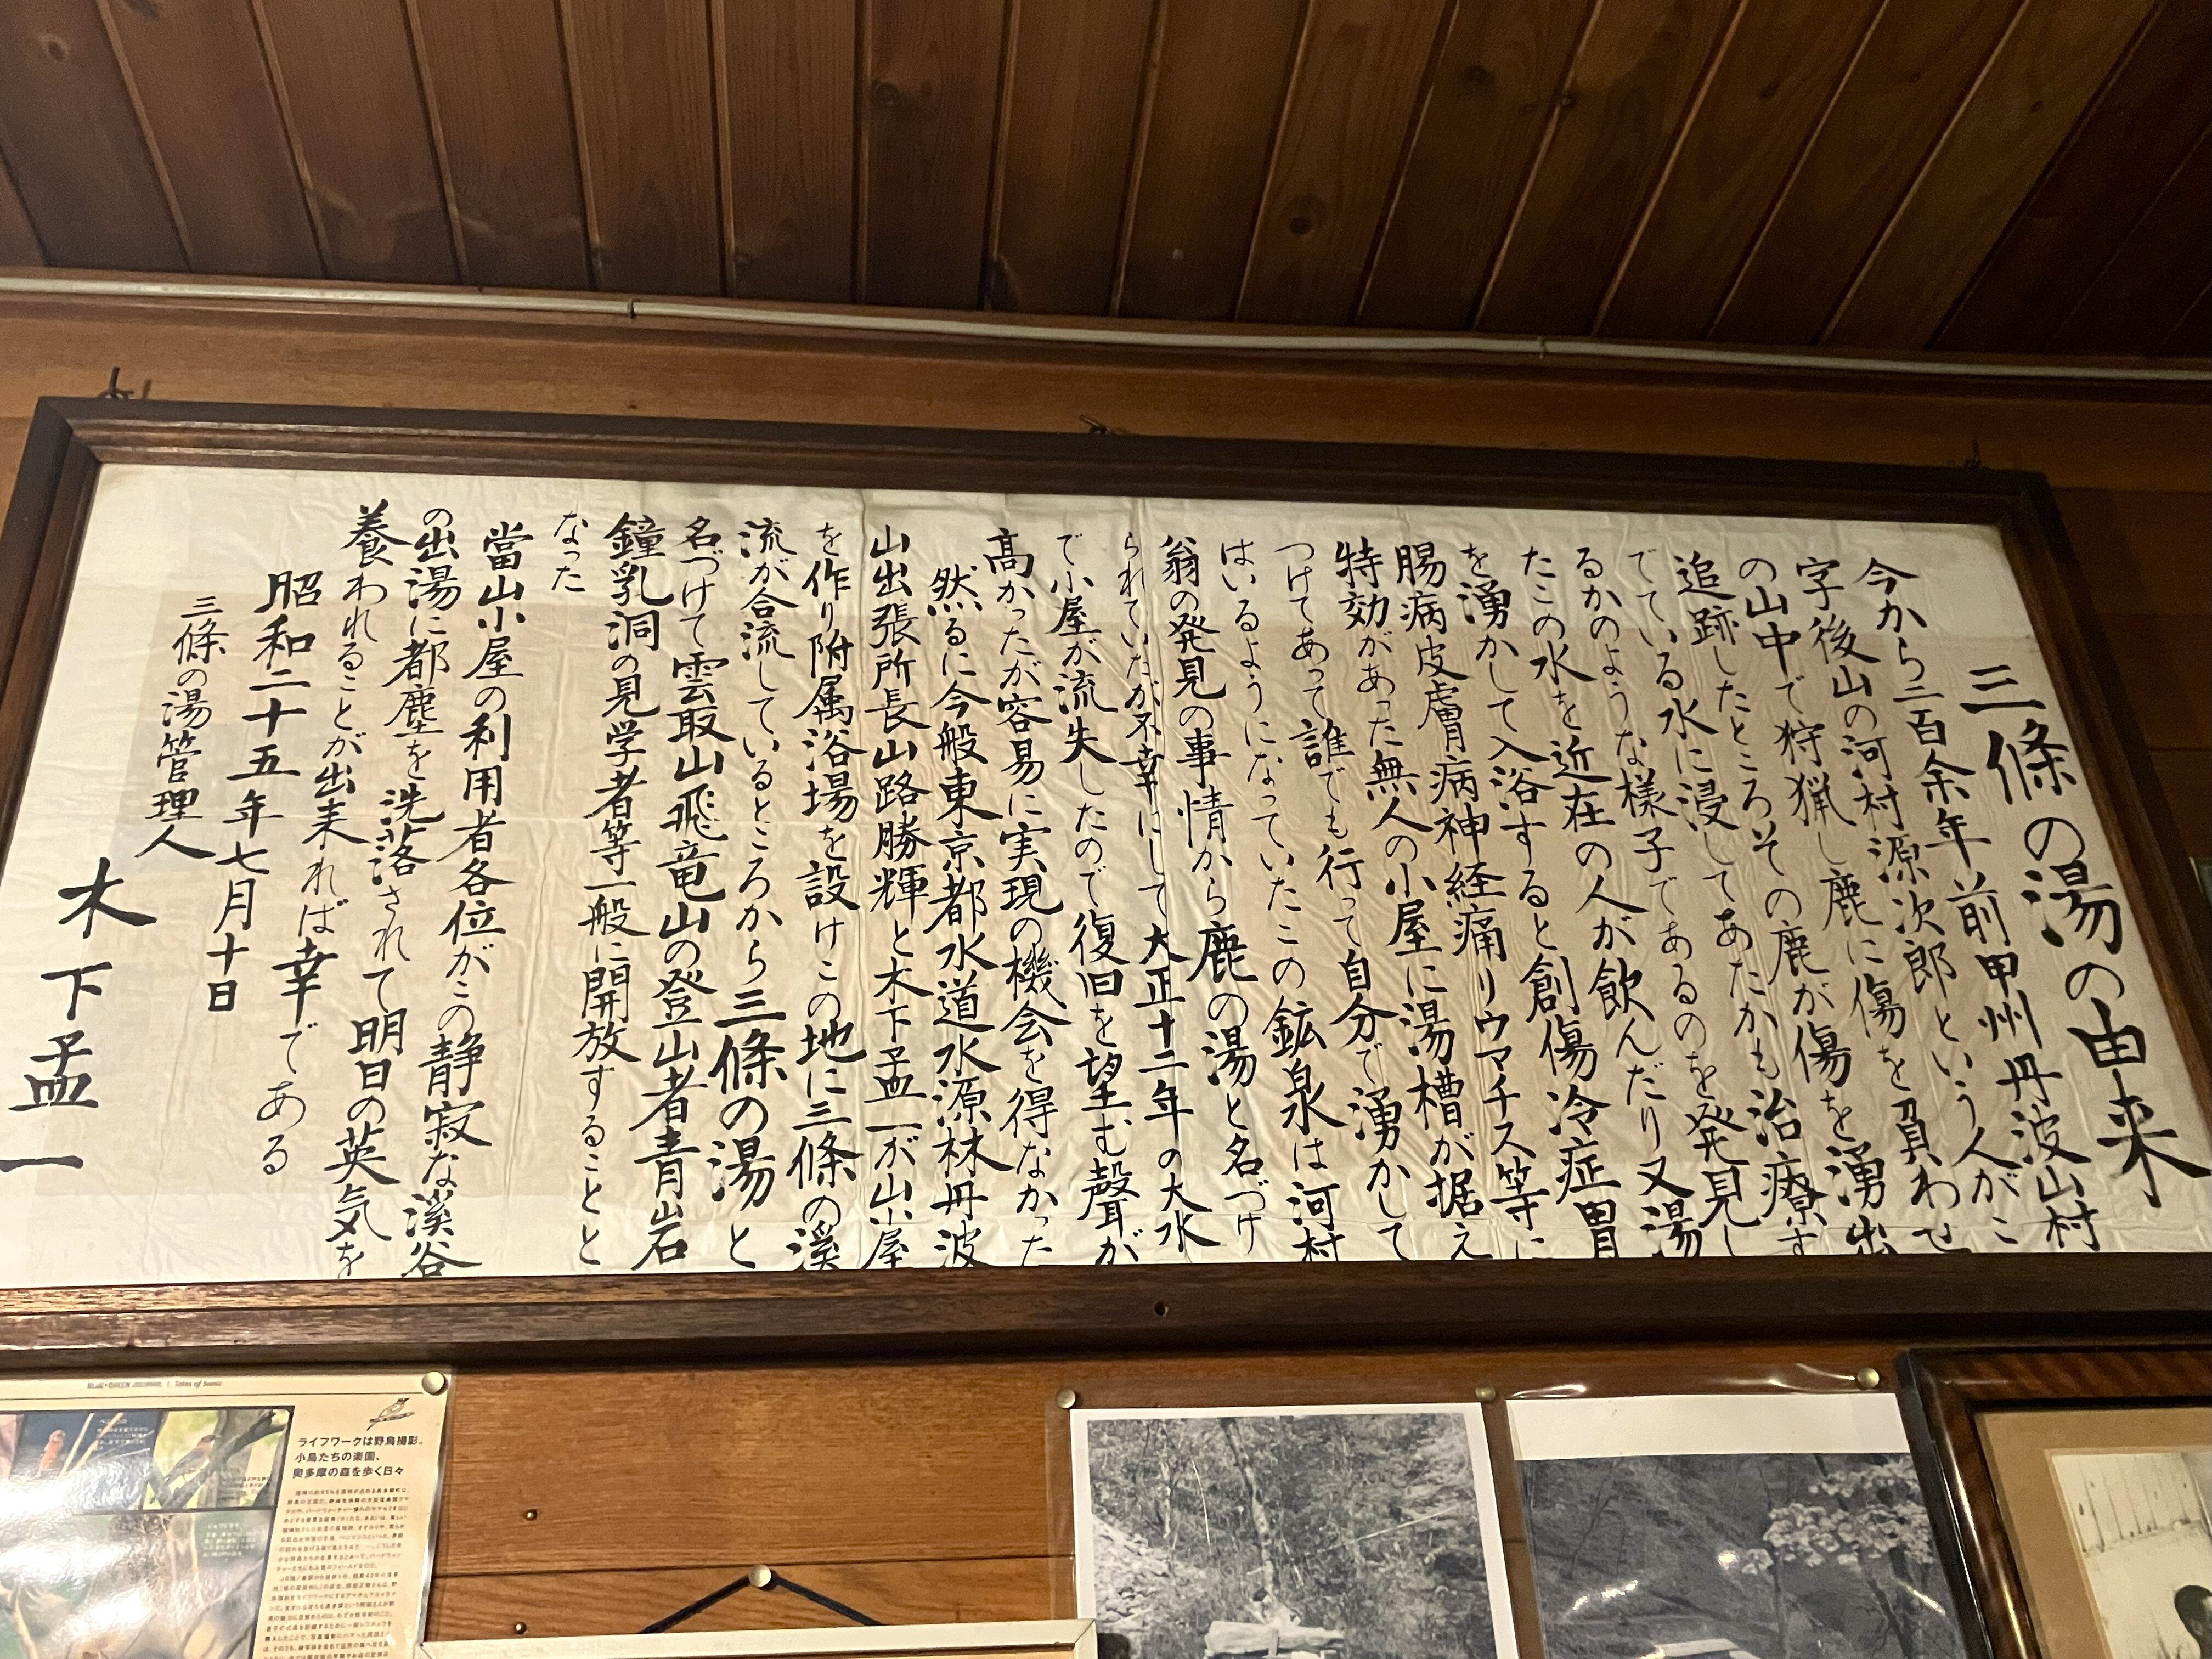 三條の湯の由来
今から二百余年前甲州丹波山村
字後山の河村源次郎という人がこ
の山中で狩猟し鹿に傷を負わせ
追跡したところその鹿が傷を湧出
でている水に浸してあたかも治療す
るかのような様子であるのを発見し
たこの水を近在の人が飲んだり又湯
を湧かして入浴すると創傷冷症胃
腸病皮膚病神経痛リウマチス等に
特効があった無人の小屋に湯槽が据え
つけてあって誰でも行って自分で湧かして
はいるようになっていたこの鉱泉は河村
翁の発見の事情から鹿の湯と名づけ
られていたが不幸にして大正十二年の大水
で小屋が流失したので復旧を望む聲が
高かったが容易に実現の機会を得なかった
然るに今般東京都水道水源林丹波
山出張所長山路勝輝と木下孟一が山小屋
を作り附属浴場を設けこの地に三條の溪
流が合流しているところから三條の湯と
名づけて雲取山飛竜山の登山者青岩
鐘乳洞の見学者等一般に開放することと
なった
當山小屋の利用者各位がこの静寂な溪谷
の出湯に都塵を洗落されて明日の英気を
養われることが出来れば幸である
昭和二十五年七月十日
三條の湯管理人
木下孟一
BLUE+GREEN JOURNAL | Tales of Scenic
ライフワークは野鳥撮影。
小鳥たちの楽園、
奥多摩の森を歩く日々